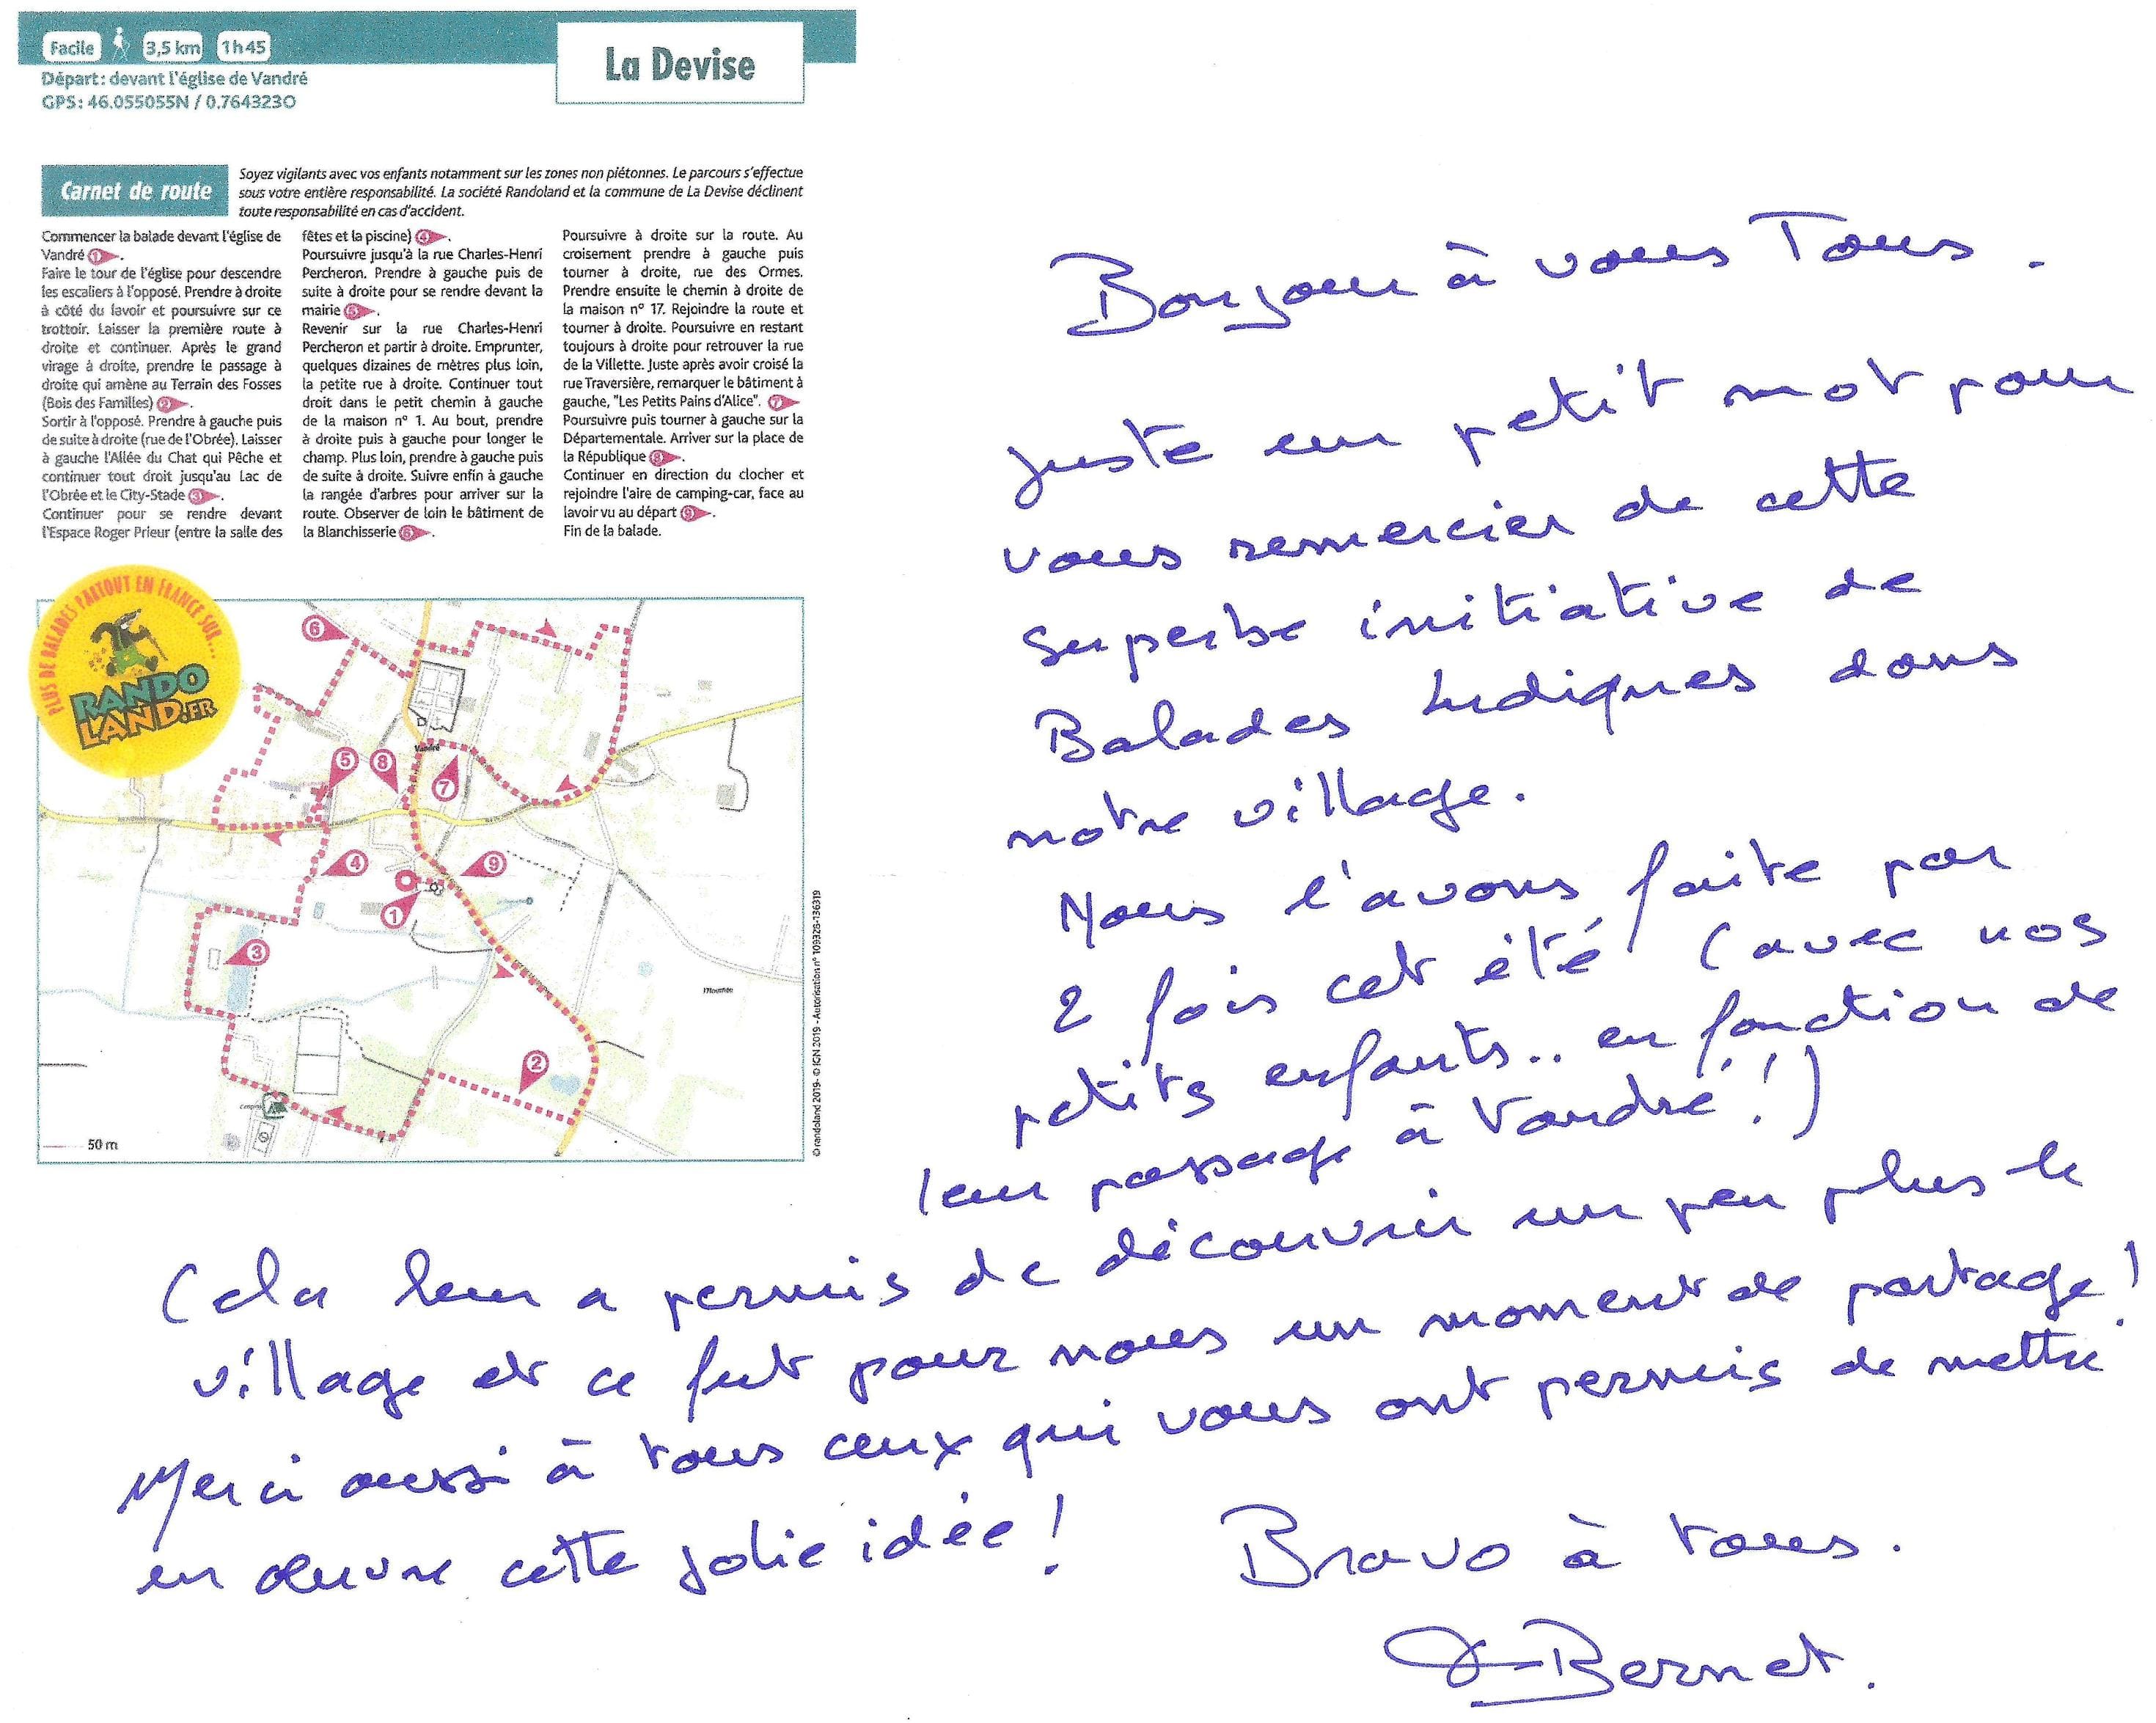 Facile 3,5 km 1h45
La Devise
Départ : devant l'église de Vandré
GPS : 46.055055N / 0.764323O
Carnet de route
Soyez vigilants avec vos enfants notamment sur les zones non piétonnes. Le parcours s'effectue
sous votre entière responsabilité. La société Randoland et la commune de La Devise déclinent
toute responsabilité en cas d'accident.
Commencer la balade devant l'église de
Vandré 1.
Faire le tour de l'église pour descendre
les escaliers à l'opposé. Prendre à droite
à côté du lavoir et poursuivre sur ce
trottoir. Laisser la première route à
droite et continuer. Après le grand
virage à droite, prendre le passage à
droite qui amène au Terrain des Fosses
(Bois des Familles) 2.
Sortir à l'opposé. Prendre à gauche puis
de suite à droite (rue de l'Obrée). Laisser
à gauche l'Allée du Chat qui Pêche et
continuer tout droit jusqu'au Lac de
l'Obrée et le City-Stade 3.
Continuer pour se rendre devant
l'Espace Roger Prieur (entre la salle des
fêtes et la piscine) 4.
Poursuivre jusqu'à la rue Charles-Henri
Percheron. Prendre à gauche puis de
suite à droite pour se rendre devant la
mairie 5.
Revenir sur la rue Charles-Henri
Percheron et partir à droite. Emprunter,
quelques dizaines de mètres plus loin,
la petite rue à droite. Continuer tout
droit dans le petit chemin à gauche
de la maison n° 1. Au bout, prendre
à droite puis à gauche pour longer le
champ. Plus loin, prendre à gauche puis
de suite à droite. Suivre enfin à gauche
la rangée d'arbres pour arriver sur la
route. Observer de loin le bâtiment de
la Blanchisserie 6.
Poursuivre à droite sur la route. Au
croisement prendre à gauche puis
tourner à droite, rue des Ormes.
Prendre ensuite le chemin à droite de
la maison n° 17. Rejoindre la route et
tourner à droite. Poursuivre en restant
toujours à droite pour retrouver la rue
de la Villette. Juste après avoir croisé la
rue Traversière, remarquer le bâtiment à
gauche, "Les Petits Pains d'Alice". 7
Poursuivre puis tourner à gauche sur la
Départementale. Arriver sur la place de
la République 8.
Continuer en direction du clocher et
rejoindre l'aire de camping-car, face au
lavoir vu au départ 9.
Fin de la balade.
PLUS DE BALADES PARTOUT EN FRANCE SUR...
RANDO
LAND.FR
6
5
8
7
Vandré
4
9
1
3
2
50 m
© randoland 2019 - © IGN 2019 - Autorisation n° 109328-136319
Bonjour à vous Tous.
Juste un petit mot pour
vous remercier de cette
superbe initiative de
Balades Ludiques dans
notre village.
Nous l'avons faite par
2 fois cet été (avec nos
petits enfants.. en fonction de
leur passage à Vandré !)
Cela leur a permis de découvrir un peu plus le
village et ce fut pour nous un moment de partage !
Merci aussi à tous ceux qui vous ont permis de mettre
en œuvre cette jolie idée !
Bravo à tous.
Bernet.